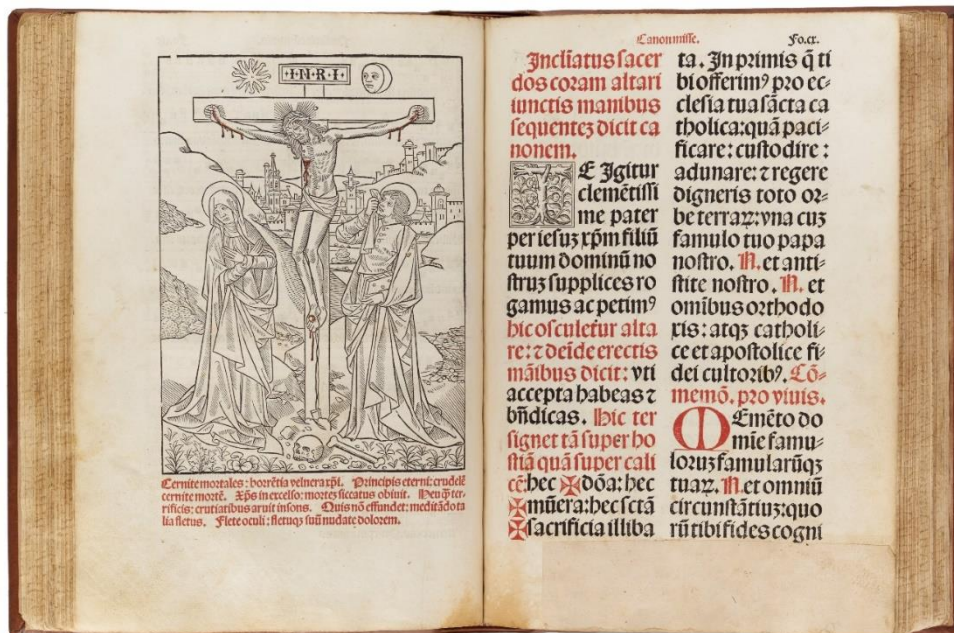 ·I·N·R·I·
Cernite mortales: horrẽtia vulnera xp̃i. Principis eterni: crudelẽ
cernite mortẽ. Xp̃s in excelso: mortez siccatus obiuit. Heu q̃ ter-
rificis: crutiatibus aruit insons. Quis nõ effundet: meditãdo ta
lia fletus. Flete oculi: fletuqȝ suũ nudate dolorem.
Canon misse. Fo.cx.
Inclĩatus sacer
dos coram altari
iunctis manibus
sequentez dicit ca
nonem.
TE Igitur
clemẽtissi
me pater
per iesuȝ xp̃m filiũ
tuum dominũ no
struȝ supplices ro
gamus ac petimꝰ
hic osculetur alta
re: ⁊ deĩde erectis
mãibus dicit: vti
accepta habeas ⁊
bñdicas. Hic ter
signet tã super ho
stiã quã super cali
cẽ: hec ✠ dõa: hec
✠ mũera: hec sctã
✠ sacrificia illiba
ta. In primis q̃ ti
bi offerimꝰ pro ec-
clesia tua sãcta ca
tholica: quã paci-
ficare: custodire:
adunare: ⁊ regere
digneris toto or-
be terraꝝ: vna cuȝ
famulo tuo papa
nostro. N. et anti-
stite nostro. N. et
omĩbus orthodo
xis: atqȝ catholi-
ce et apostolice fi-
dei cultoribꝰ. Cõ-
memo. pro viuis.
MEmẽto do
mĩe famu-
loruȝ famularũqȝ
tuaꝝ. N. et omniũ
circunstãtiuȝ: quo
rũ tibi fides cogni